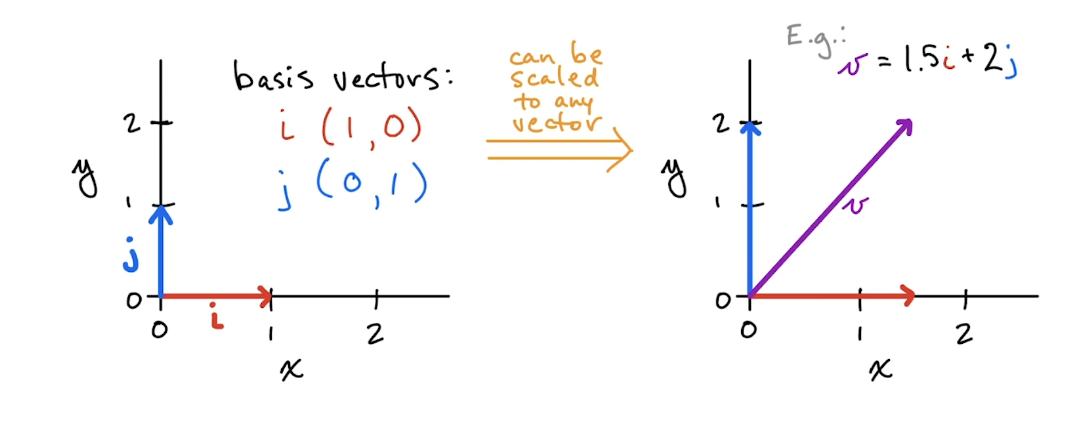 basis vectors:
i (1,0)
j (0,1)
y
2
1
0
j
i
0
1
2
x
can be
scaled
to any
vector
E.g.:
v = 1.5i + 2j
y
2
1
0
v
0
1
2
x